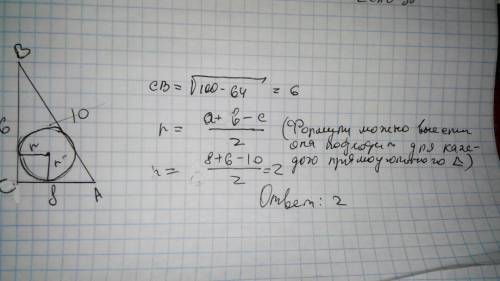 B
10
6
r
r
C
8
A
CB = √100-64 = 6
r = a+b-c / 2 (Формулу можно вынести
она подходит для каж-
дого прямоугольного Δ)
r = 8+6-10 / 2 = 2
Ответ: 2